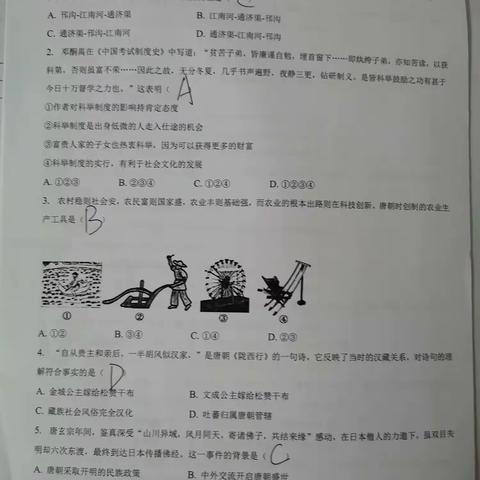 A. 邗沟-江南河-通济渠 B. 江南河-通济渠-邗沟
C. 通济渠-邗沟-江南河 D. 通济渠-江南河-邗沟
2. 邓嗣禹在《中国考试制度史》中写道：“贫苦子弟，皆廉谨自勉，埋首窗下……即纨绔子弟，亦知苦读，以获
科第，否则虽富不荣……因此之故，无分冬夏，几乎书声遍野，夜静三更，钻研制义，是皆科举鼓励之功有甚于
今日十万督学之力也。”这表明（ A ）
①作者对科举制度的影响持肯定态度
②科举制度是出身低微的人走入仕途的机会
③富贵人家的子女也热衷科举，因为可以获得更多的财富
④科举制度的实行，有利于社会文化的发展
A. ①②③ B. ②③④ C. ①②④ D. ①②③④
3. 农村稳则社会安，农民富则国家盛，农业丰则基础强，而农业的根本出路则在科技创新。唐朝时创制的农业生
产工具是（ B ）
① ② ③ ④
A. ①② B. ③④ C. ①④ D. ②③
4. “自从贵主和亲后，一半胡风似汉家。”是唐朝《陇西行》的一句诗，它反映了当时的汉藏关系，对诗句的理
解符合事实的是（ D ）
A. 金城公主嫁给松赞干布 B. 文成公主嫁给松赞干布
C. 藏族社会风俗完全汉化 D. 吐蕃归属唐朝管辖
5. 唐玄宗年间，鉴真深受“山川异域，风月同天，寄诸佛子，共结来缘”感动，在日本僧人的力邀下，虽双目失
明却六次东渡，最终到达日本传播佛经。这一事件的背景是（ C
A. 唐朝采取开明的民族政策 B. 中外交流开启唐朝盛世